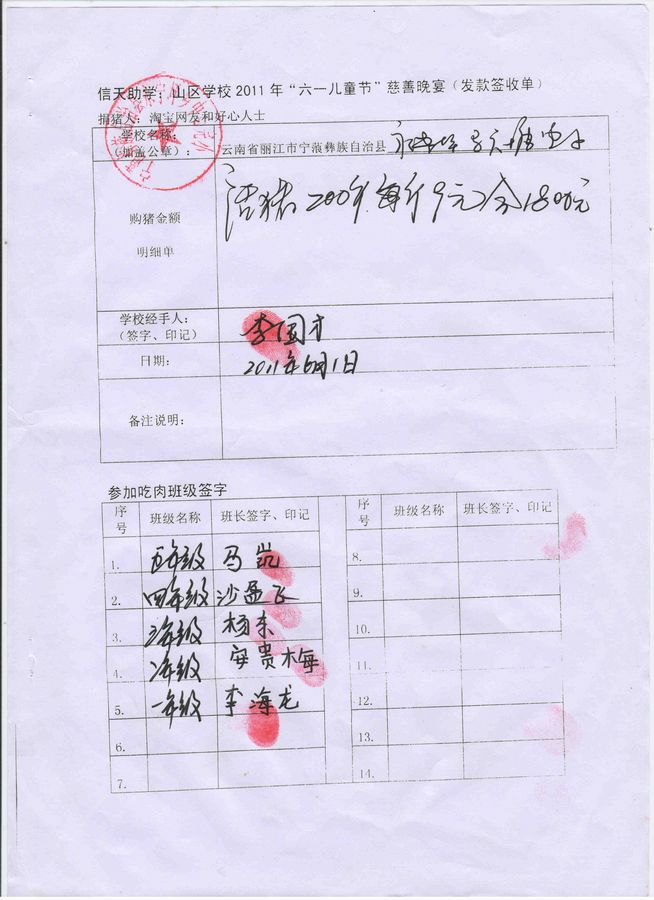 信天助学：山区学校2011年“六一儿童节”慈善晚宴（发款签收单）
捐猪人：淘宝网友和好心人士
学校名称：
（加盖公章）：
云南省丽江市宁蒗彝族自治县
购猪金额
明细单
活猪200斤.每斤9元合1800元
学校经手人：
（签字、印记）
李国才
日期：
2011年6月1日
备注说明：
参加吃肉班级签字
序号 班级名称 班长签字、印记 序号 班级名称 班长签字、印记
1. 五年级 马凯 8.
2. 四年级 沙孟飞 9.
3. 三年级 杨东 10.
4. 二年级 安贵梅 11.
5. 一年级 李海龙 12.
6. 13.
7. 14.